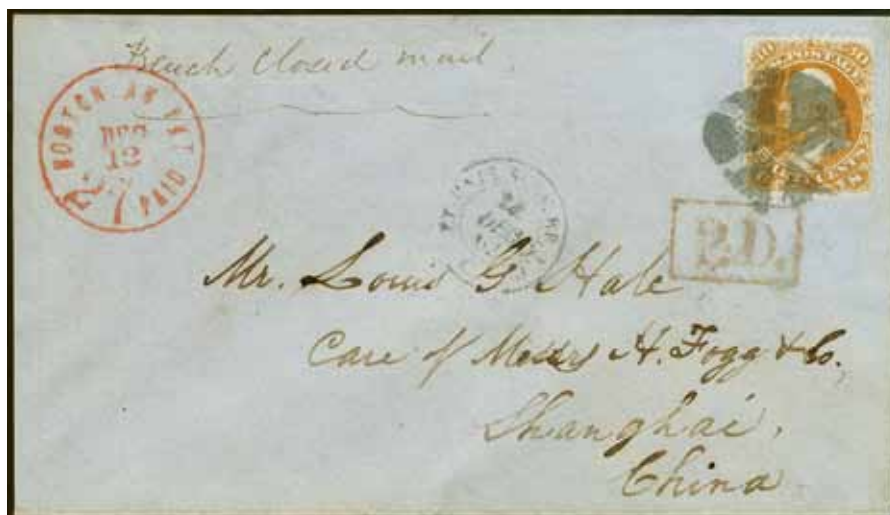 French Closed mail.
BOSTON AM. PKT.
DEC
12
PAID
30 30
POSTAGE
P.D.
Mr. Louis G Hale
Care of Messrs H. Fogg & Co.,
Shanghai,
China